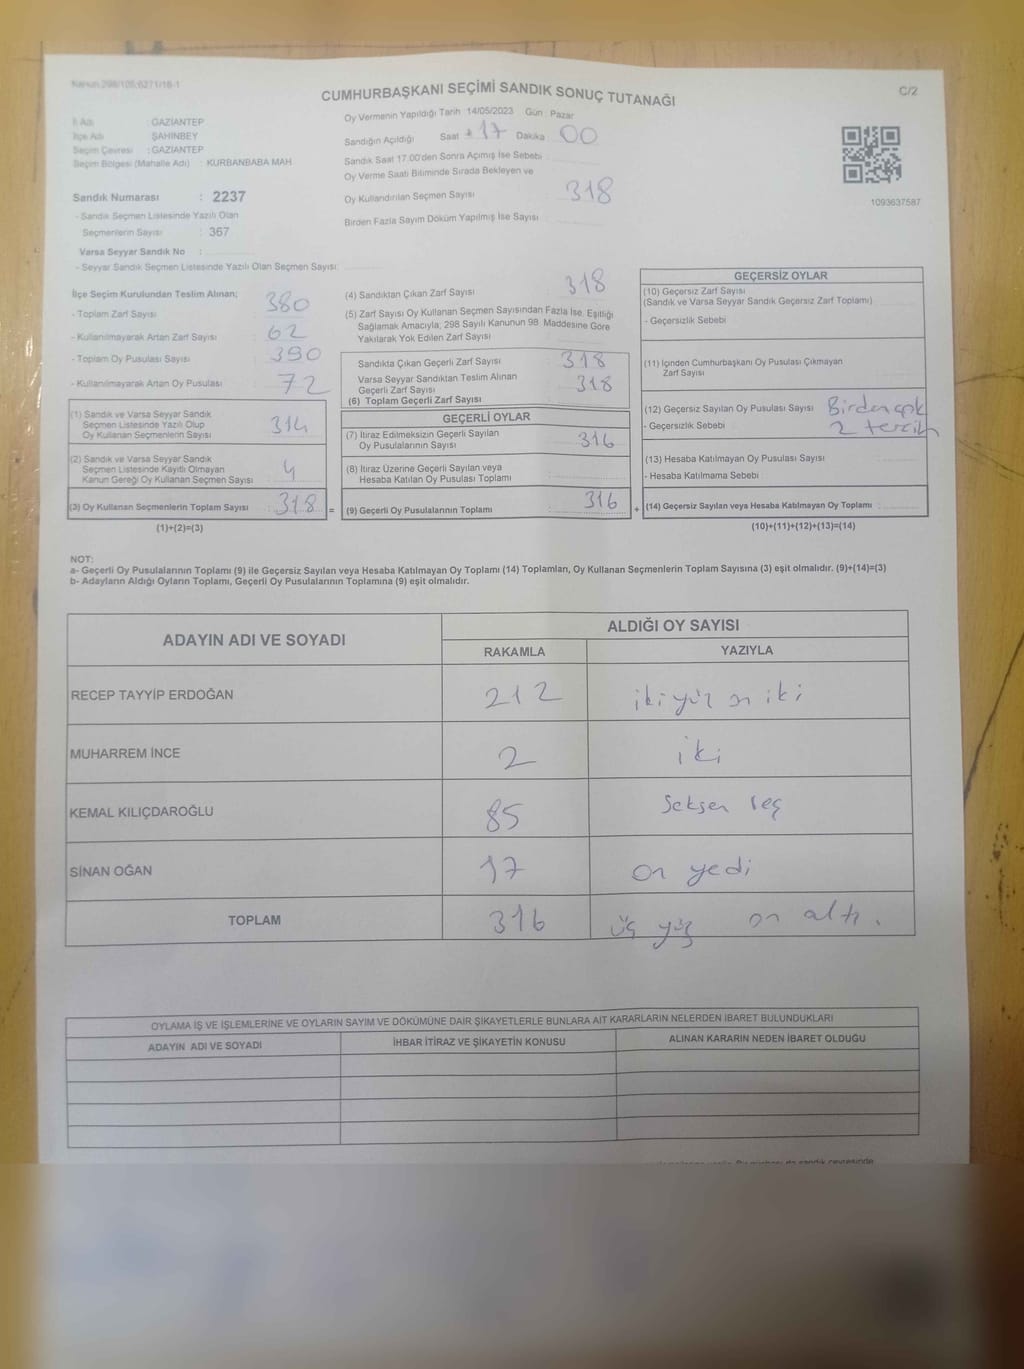 Kanun 298/105;6271/16-1
CUMHURBAŞKANI SEÇİMİ SANDIK SONUÇ TUTANAĞI
C/2
İl Adı : GAZİANTEP
İlçe Adı : ŞAHİNBEY
Seçim Çevresi : GAZİANTEP
Seçim Bölgesi (Mahalle Adı) : KURBANBABA MAH
Sandık Numarası : 2237
- Sandık Seçmen Listesinde Yazılı Olan
Seçmenlerin Sayısı : 367
Varsa Seyyar Sandık No :
- Seyyar Sandık Seçmen Listesinde Yazılı Olan Seçmen Sayısı:
Oy Vermenin Yapıldığı Tarih 14/05/2023 Gün : Pazar
Sandığın Açıldığı Saat 17 Dakika 00
Sandık Saat 17.00'den Sonra Açımış İse Sebebi
Oy Verme Saati Bitiminde Sırada Bekleyen ve
Oy Kullandırılan Seçmen Sayısı 318
Birden Fazla Sayım Döküm Yapılmış İse Sayısı
1093637587
İlçe Seçim Kurulundan Teslim Alınan;
- Toplam Zarf Sayısı 380
- Kullanılmayarak Artan Zarf Sayısı 62
- Toplam Oy Pusulası Sayısı 390
- Kullanılmayarak Artan Oy Pusulası 72
(1) Sandık ve Varsa Seyyar Sandık
Seçmen Listesinde Yazılı Olup
Oy Kullanan Seçmenlerin Sayısı 314
(2) Sandık ve Varsa Seyyar Sandık
Seçmen Listesinde Kayıtlı Olmayan
Kanun Gereği Oy Kullanan Seçmen Sayısı 4
(3) Oy Kullanan Seçmenlerin Toplam Sayısı : 318 =
(1)+(2)=(3)
(4) Sandıktan Çıkan Zarf Sayısı 318
(5) Zarf Sayısı Oy Kullanan Seçmen Sayısından Fazla İse, Eşitliği
Sağlamak Amacıyla, 298 Sayılı Kanunun 98. Maddesine Göre
Yakılarak Yok Edilen Zarf Sayısı
Sandıkta Çıkan Geçerli Zarf Sayısı 318
Varsa Seyyar Sandıktan Teslim Alınan
Geçerli Zarf Sayısı 318
(6) Toplam Geçerli Zarf Sayısı
GEÇERLİ OYLAR
(7) İtiraz Edilmeksizin Geçerli Sayılan
Oy Pusulalarının Sayısı 316
(8) İtiraz Üzerine Geçerli Sayılan veya
Hesaba Katılan Oy Pusulası Toplamı
(9) Geçerli Oy Pusulalarının Toplamı 316 +
GEÇERSİZ OYLAR
(10) Geçersiz Zarf Sayısı
(Sandık ve Varsa Seyyar Sandık Geçersiz Zarf Toplamı)
- Geçersizlik Sebebi
(11) İçinden Cumhurbaşkanı Oy Pusulası Çıkmayan
Zarf Sayısı
(12) Geçersiz Sayılan Oy Pusulası Sayısı Birden çok
- Geçersizlik Sebebi 2 tercih
(13) Hesaba Katılmayan Oy Pusulası Sayısı
- Hesaba Katılmama Sebebi
(14) Geçersiz Sayılan veya Hesaba Katılmayan Oy Toplamı :
(10)+(11)+(12)+(13)=(14)
NOT:
a- Geçerli Oy Pusulalarının Toplamı (9) ile Geçersiz Sayılan veya Hesaba Katılmayan Oy Toplamı (14) Toplamları, Oy Kullanan Seçmenlerin Toplam Sayısına (3) eşit olmalıdır. (9)+(14)=(3)
b- Adayların Aldığı Oyların Toplamı, Geçerli Oy Pusulalarının Toplamına (9) eşit olmalıdır.
ADAYIN ADI VE SOYADI ALDIĞI OY SAYISI
RAKAMLA YAZIYLA
RECEP TAYYİP ERDOĞAN 212 iki yüz on iki
MUHARREM İNCE 2 iki
KEMAL KILIÇDAROĞLU 85 Seksen beş
SİNAN OĞAN 17 on yedi
TOPLAM 316 üç yüz on altı.
OYLAMA İŞ VE İŞLEMLERİNE VE OYLARIN SAYIM VE DÖKÜMÜNE DAİR ŞİKAYETLERLE BUNLARA AİT KARARLARIN NELERDEN İBARET BULUNDUKLARI
ADAYIN ADI VE SOYADI İHBAR İTİRAZ VE ŞİKAYETİN KONUSU ALINAN KARARIN NEDEN İBARET OLDUĞU